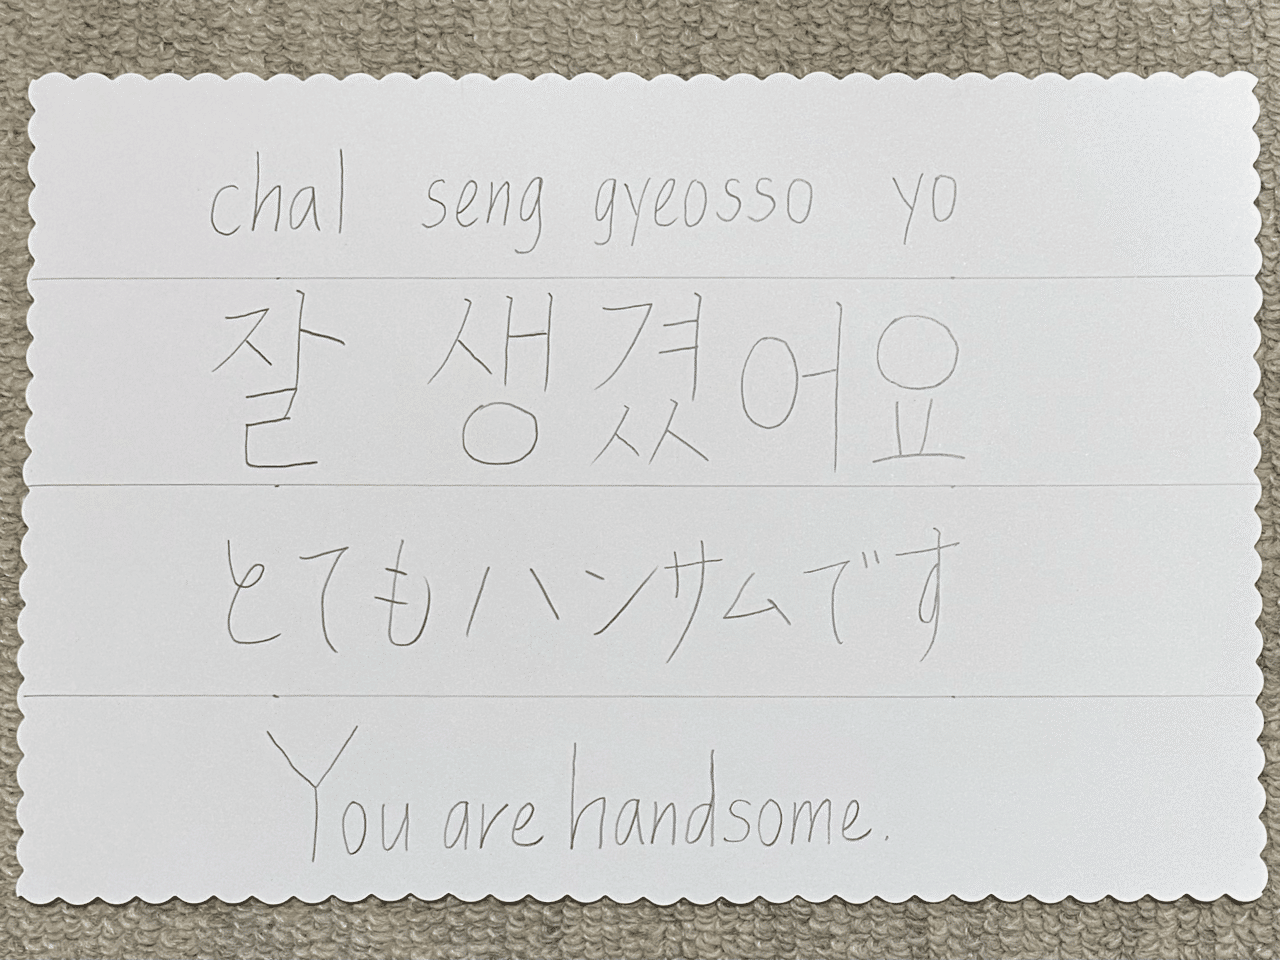 chal seng gyeosso yo
잘 생겼어요
とてもハンサムです
You are handsome.